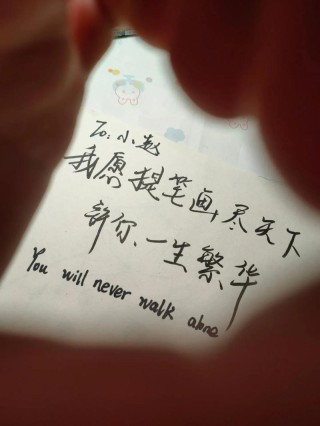 To: 小赵
我愿提笔画尽天下
许你一生繁华
You will never walk alone